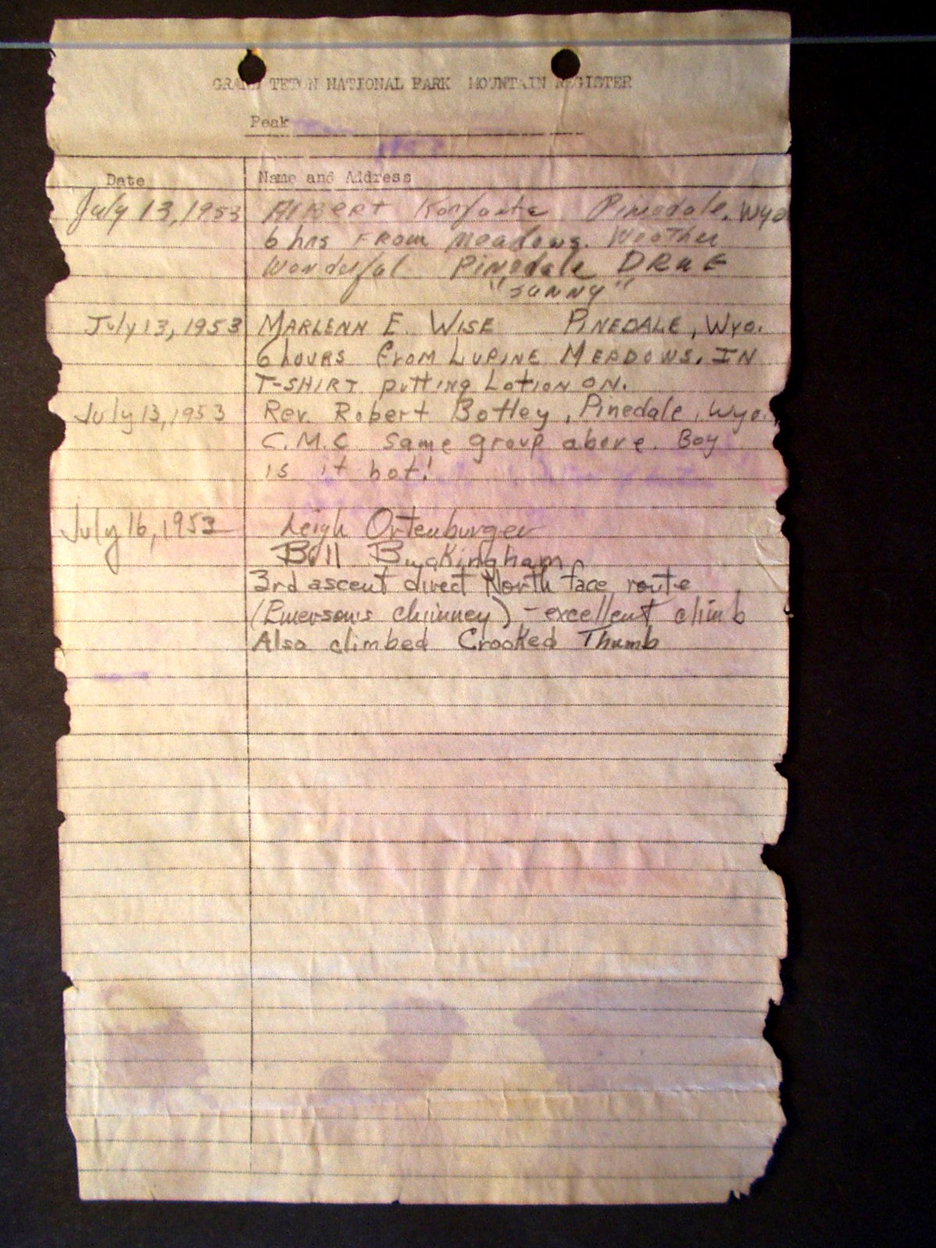 GRAND TETON NATIONAL PARK MOUNTAIN REGISTER
Peak
Date Name and Address
July 13, 1953 Albert Pinedale, Wyo
6 hrs From Meadows. Weather
Wonderful Pinedale
"SUNNY"
July 13, 1953 MARLENN E. WISE PINEDALE, Wyo.
6 hours from LUPINE MEADOWS. IN
T-SHIRT putting Lotion ON.
July 13, 1953 Rev. Robert Botley, Pinedale, Wyo.
C.M.C same group above. Boy
is it hot!
July 16, 1953 Leigh Ortenburger
Bill Buckingham
3rd ascent direct North face route
(Emerson's chimney) - excellent climb
Also climbed Crooked Thumb